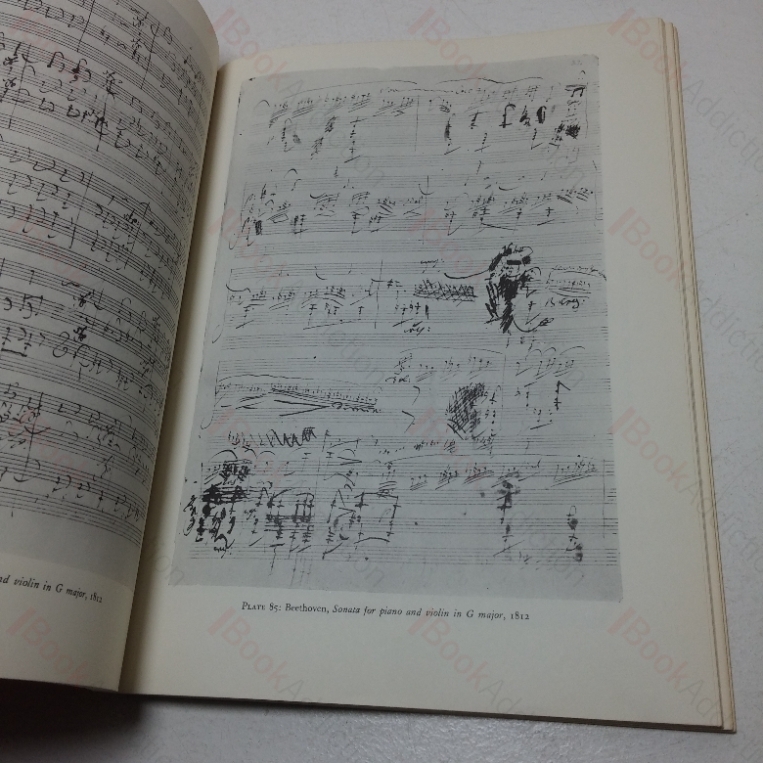 nd violin in G major, 1812
PLATE 85: Beethoven, Sonata for piano and violin in G major, 1812
BookAddiction